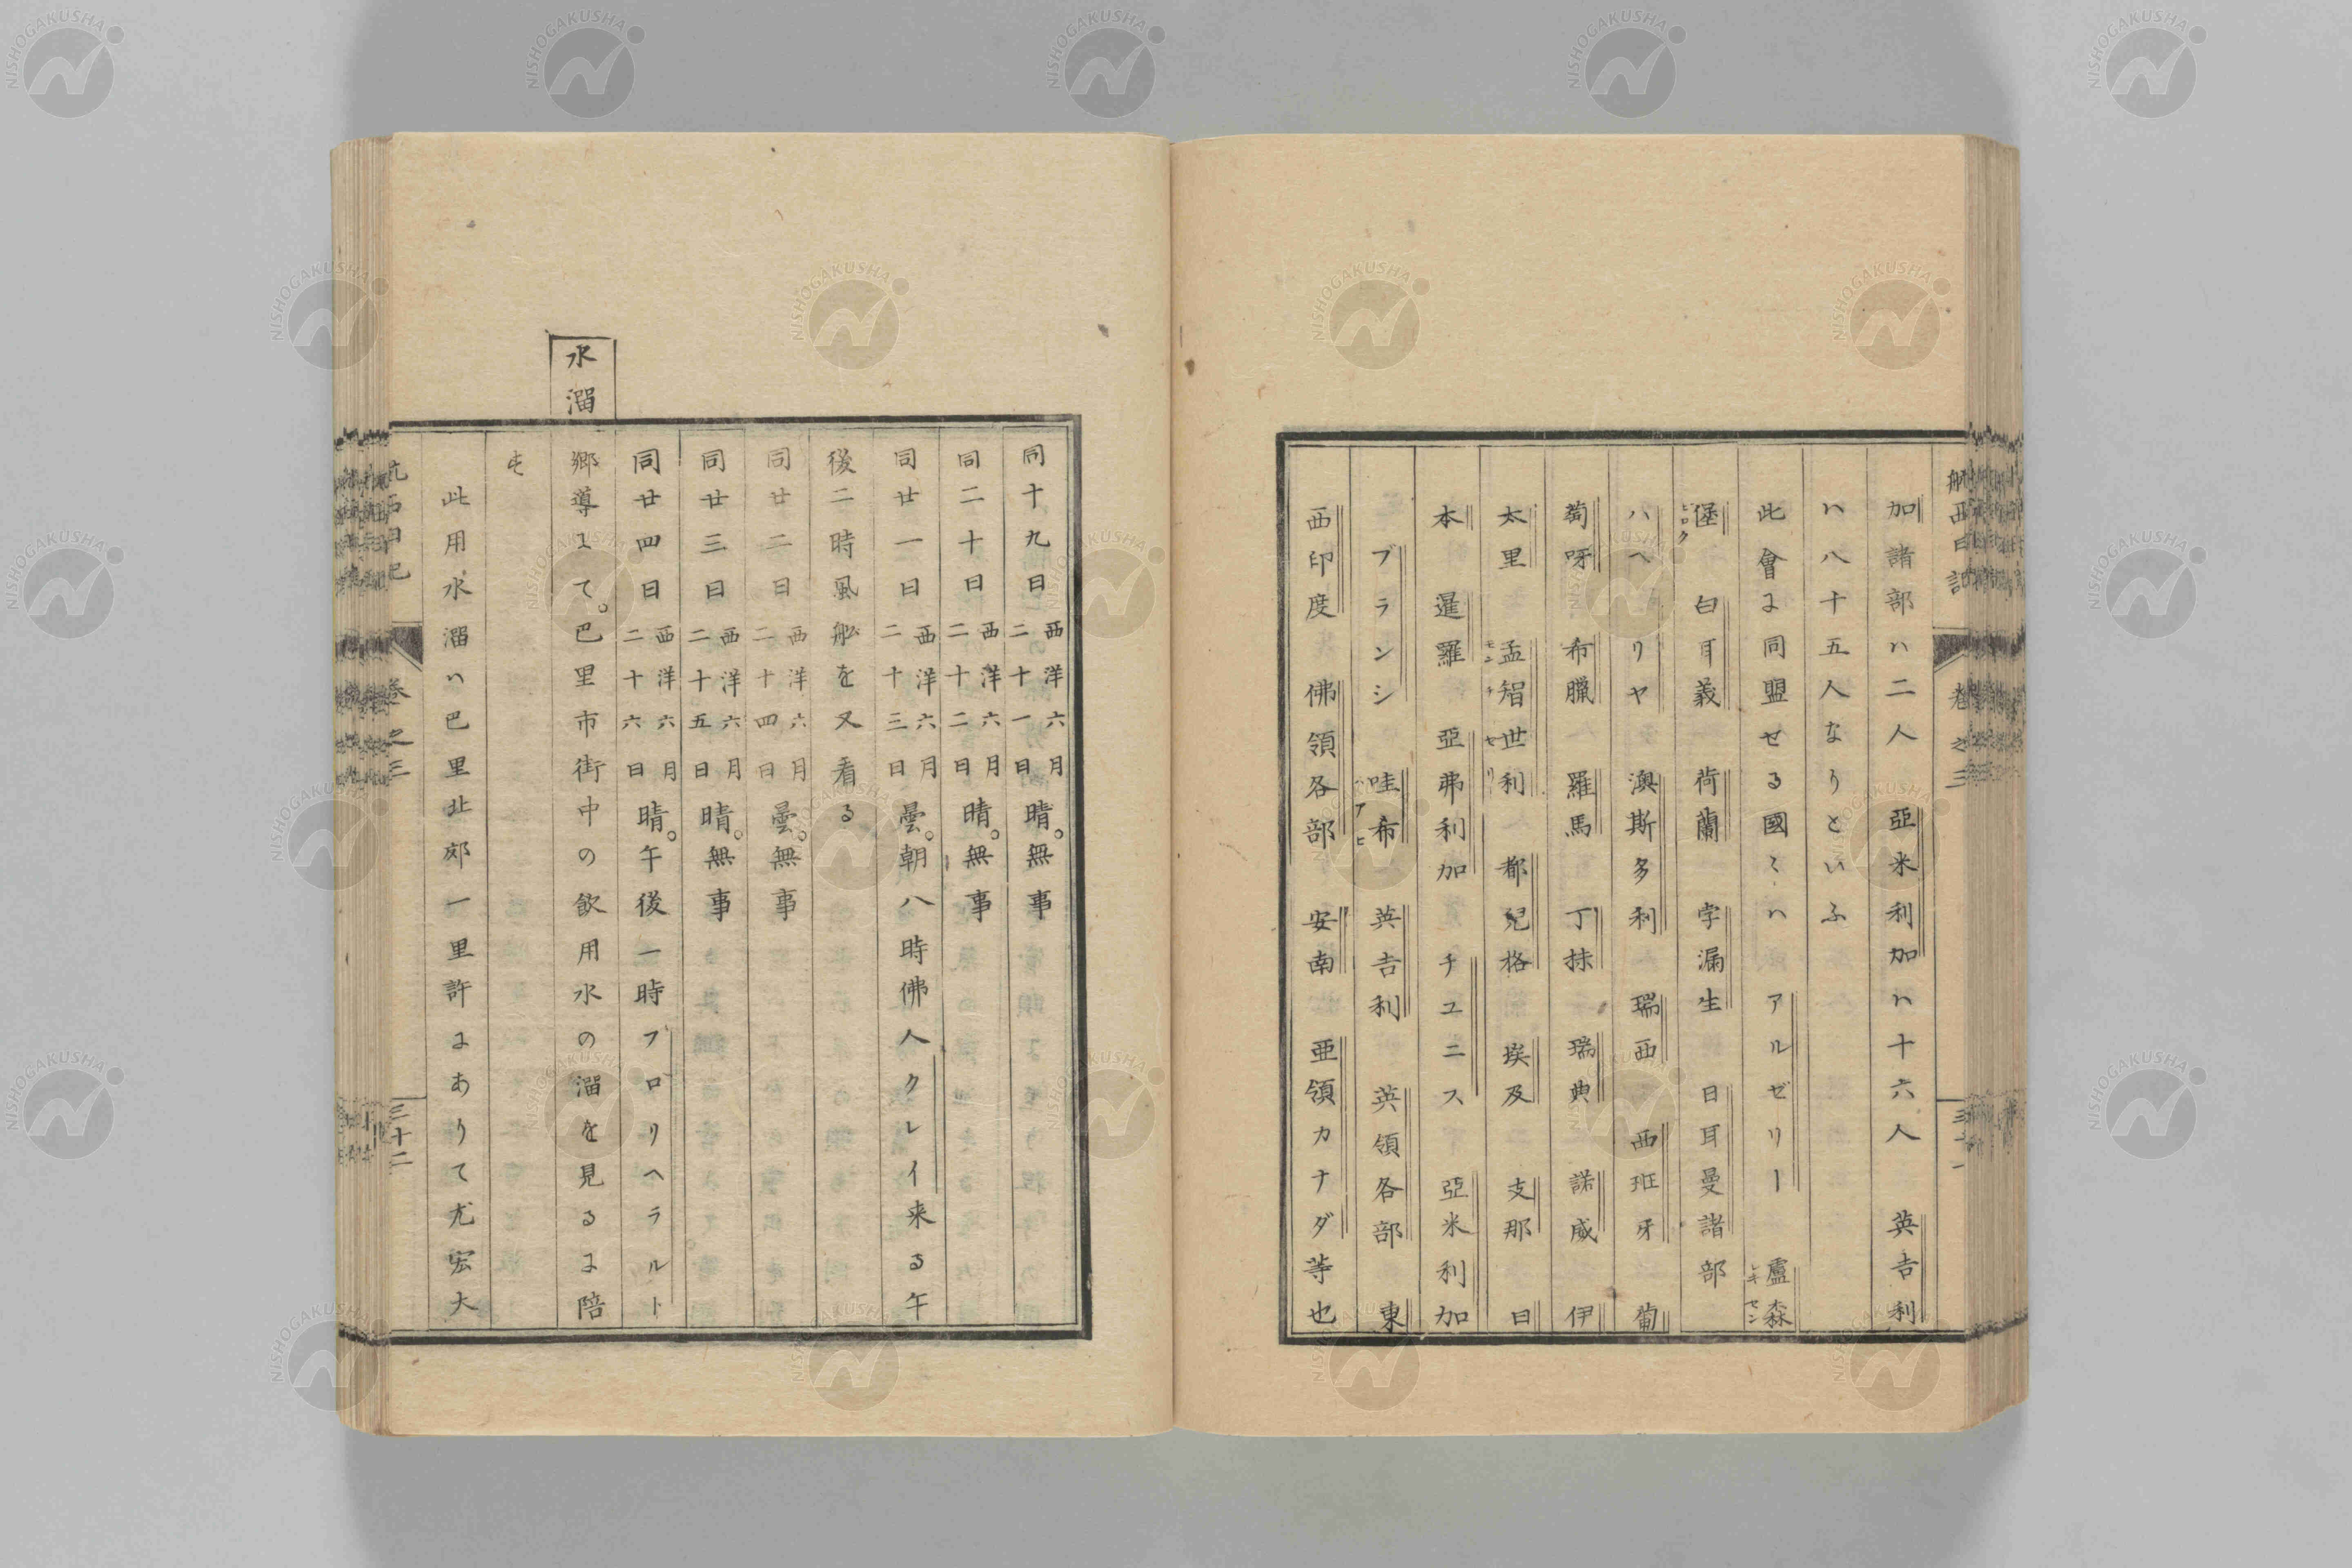 航西日記
巻之三
三十一
加諸部ハ二人　亞米利加ハ十六人　英吉利
ハ八十五人なりといふ
此會に同盟せる國〻ハ　アルゼリー　盧森
堡　白耳義　荷蘭　孛漏生　日耳曼諸部
ハヘリヤ　澳斯多利　瑞西　西班牙　葡
萄呀　布臘　羅馬　丁抹　瑞典　諾威　伊
太里　孟智世利　都兒格　埃及　支那　日
本　暹羅　亞弗利加　チユニス　亞米利加
ブランシ　哇希　英吉利　英領各部　東
西印度　佛領各部　安南　亜領カナダ等也
同十九日西洋六月二十一日晴。無事
同二十日西洋六月二十二日晴。無事
同廿一日西洋六月二十三日曇。朝八時佛人クレイ来る午
後二時風船を又看る
同廿二日西洋六月二十四日曇。無事
同廿三日西洋六月二十五日晴。無事
同廿四日西洋六月二十六日晴。午後一時フロリヘラルト
水溜
郷導にて。巴里市街中の飲用水の溜を見るに陪
す
此用水溜ハ巴里北郊一里許にありて尤宏大
航西日記
巻之三
三十二
NISHOGAKUSHA